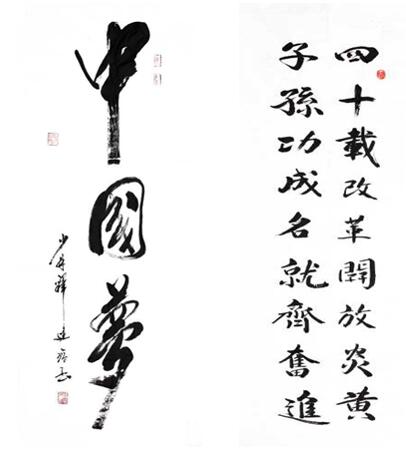 中國夢
四十載改革開放炎黃
子孫功成名就齊奮進